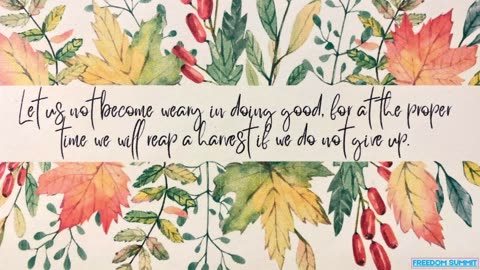 Let us not become weary in doing good, for at the proper
time we will reap a harvest if we do not give up.
FREEDOM SUMMIT